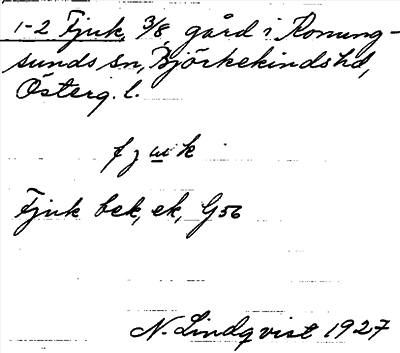 1-2 Fjuk, 3/8, gård i Konung-
sunds sn, Björkekinds hd,
Österg. l.
fjuk
Fjuk bek, ek, G56
N. Lindqvist 1927